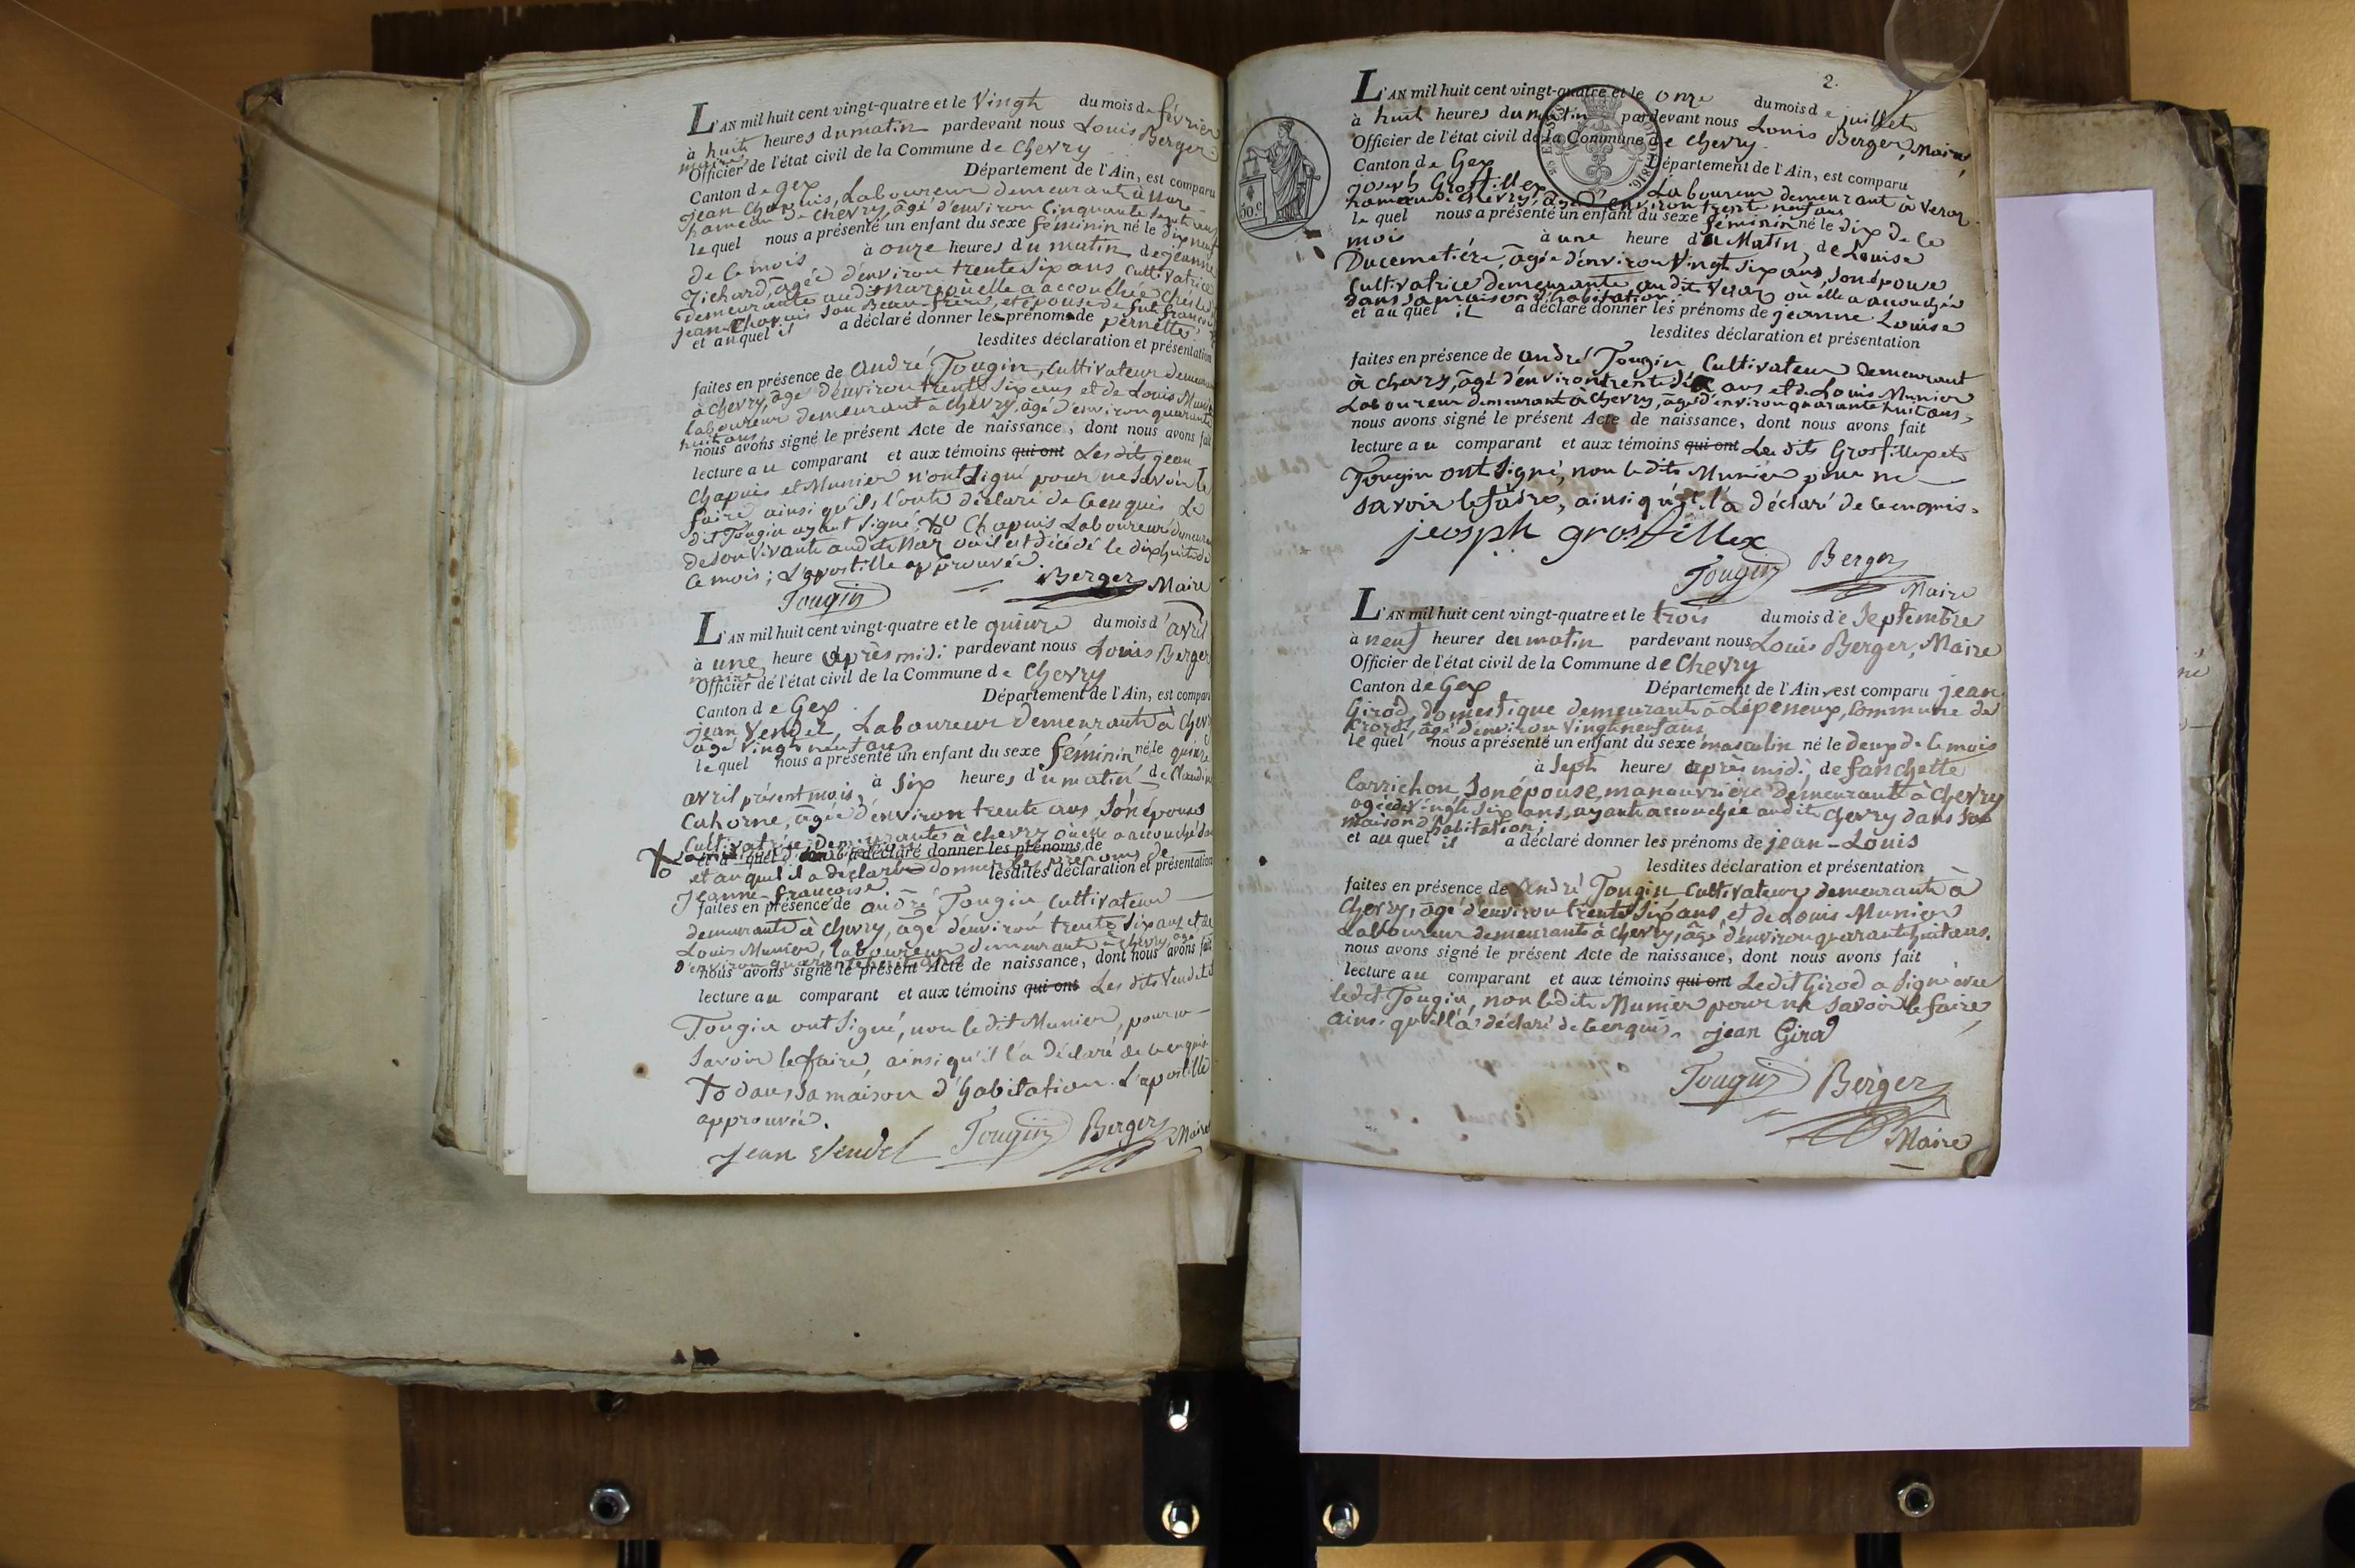 L'AN mil huit cent vingt-quatre et le Vingt du mois de février
à huit heures du matin pardevant nous Louis Berger
maire
Officier de l'état civil de la Commune de Chevry
Canton de gex Département de l'Ain, est comparu
jean Chapuis, Laboureur demeurant à
hameau de Chevry, âgé d'environ Cinquante sept ans
le quel nous a présenté un enfant du sexe féminin né le dix neuf
de ce mois à onze heures du matin de jeanne
âgée d'environ trente six ans cultivatrice
demeurante audit où elle a accouchée chez le
jean Chapuis son Beau-frère, et épouse de feu françois
et au quel il a déclaré donner les prénoms de pernette
lesdites déclaration et présentation
faites en présence de andré Tougin, Cultivateur demeurant
à Chevry, âgé d'environ trente six ans et de Louis Munier
laboureur demeurant à Chevry, âgé d'environ quarante
huit ans,
nous avons signé le présent Acte de naissance, dont nous avons fait
lecture au comparant et aux témoins qui ont Les dits jean
Chapuis et Munier n'ont signé pour ne savoir le
faire ainsi qu'ils l'ont déclaré de ce enquis Le
dit Tougin ayant signé. Chapuis Laboureur demeurant
de son Vivant audit où il est décédé le dix huit de
ce mois; L'apostille approuvée.
Tougin Berger Maire
L'AN mil huit cent vingt-quatre et le quinze du mois d'avril
à une heure après midi pardevant nous Louis Berger
maire
Officier de l'état civil de la Commune de Chevry
Canton de Gex Département de l'Ain, est comparu
jean Vendel, Laboureur demeurant à Chevry
âgé vingt neuf ans
le quel nous a présenté un enfant du sexe féminin né le quinze
avril présent mois, à six heures du matin de Claudine
Cahorne, âgée d'environ trente ans son épouse
Cultivatrice demeurante à Chevry où elle a accouchée dans
quel a déclaré donner les prénoms de
et au quel il a déclaré donner les prénoms de lesdites déclaration et présentation
Jeanne-françoise.
faites en présence de andré Tougin Cultivateur
demeurant à Chevry, âgé d'environ trente six ans et de
Louis Munier, laboureur demeurant à Chevry, âgé
d'environ quarante huit ans
nous avons signé le présent Acte de naissance, dont nous avons fait
lecture au comparant et aux témoins qui ont Les dits Vendel et
Tougin ont signé, non le dit Munier, pour ne
savoir le faire, ainsi qu'il l'a déclaré de ce enquis.
dans sa maison d'habitation. L'apostille
approuvée.
Jean Vendel Tougin Berger Maire
2.
L'AN mil huit cent vingt-quatre et le onze du mois de juillet
à huit heures du matin pardevant nous Louis Berger, Maire,
Officier de l'état civil de la Commune de Chevry.
Canton de Gex Département de l'Ain, est comparu
joseph Grosfillex Laboureur demeurant à Veraz
hameau de Chevry, âgé d'environ trente neuf ans
le quel nous a présenté un enfant du sexe féminin né le dix de ce
mois à une heure du Matin, de Louise
Ducemetiére, âgée d'environ Vingt six ans, son épouse
Cultivatrice demeurante audit Veraz où elle a accouchée
dans sa maison d'habitation
et au quel il a déclaré donner les prénoms de jeanne Louise
lesdites déclaration et présentation
faites en présence de andré Tougin Cultivateur demeurant
à Chevry, âgé d'environ trente six ans et de Louis Munier
Laboureur demeurant à Chevry, âgé d'environ quarante huit ans,
nous avons signé le présent Acte de naissance, dont nous avons fait
lecture au comparant et aux témoins qui ont Les dits Grosfillex et
Tougin ont signé, non le dit Munier pour ne
savoir le faire, ainsi qu'il l'a déclaré de ce enquis.
jeosph grosfillex
Tougin Berger
Maire
50 c
L'AN mil huit cent vingt-quatre et le trois du mois de Septembre
à neuf heures du matin pardevant nous Louis Berger, Maire
Officier de l'état civil de la Commune de Chevry
Canton de Gex Département de l'Ain, est comparu jean
Girod, domestique demeurant à Lépeneux, Commune de
Crozet, âgé d'environ vingt neuf ans,
le quel nous a présenté un enfant du sexe masculin né le deux de ce mois
à Sept heures après midi, de fanchette
Carrichon, son épouse, manouvrière demeurante à Chevry
âgée de vingt six ans, ayant accouchée audit Chevry dans sa
maison d'habitation
et au quel il a déclaré donner les prénoms de jean-Louis
lesdites déclaration et présentation
faites en présence de André Tougin Cultivateur demeurant à
Chevry, âgé d'environ trente six ans, et de Louis Munier
Laboureur demeurant à Chevry, âgé d'environ quarante huit ans.
nous avons signé le présent Acte de naissance, dont nous avons fait
lecture au comparant et aux témoins qui ont Ledit Girod a signé avec
ledit Tougin, non ledit Munier pour ne savoir le faire
ainsi qu'il l'a déclaré de ce enquis. jean Girod
Tougin Berger
Maire